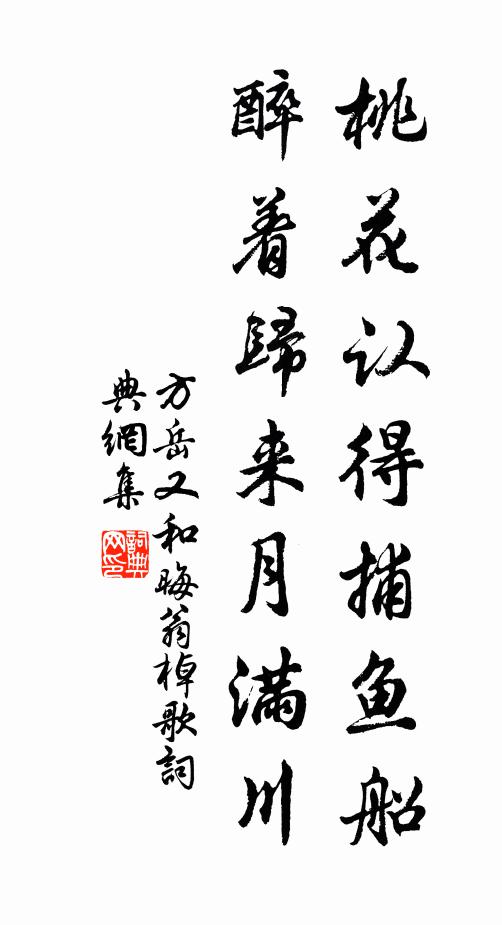 桃花认得捕鱼船
醉着歸来月满川
方岳又和晦翁棹歌詞
典網集
詞典网印